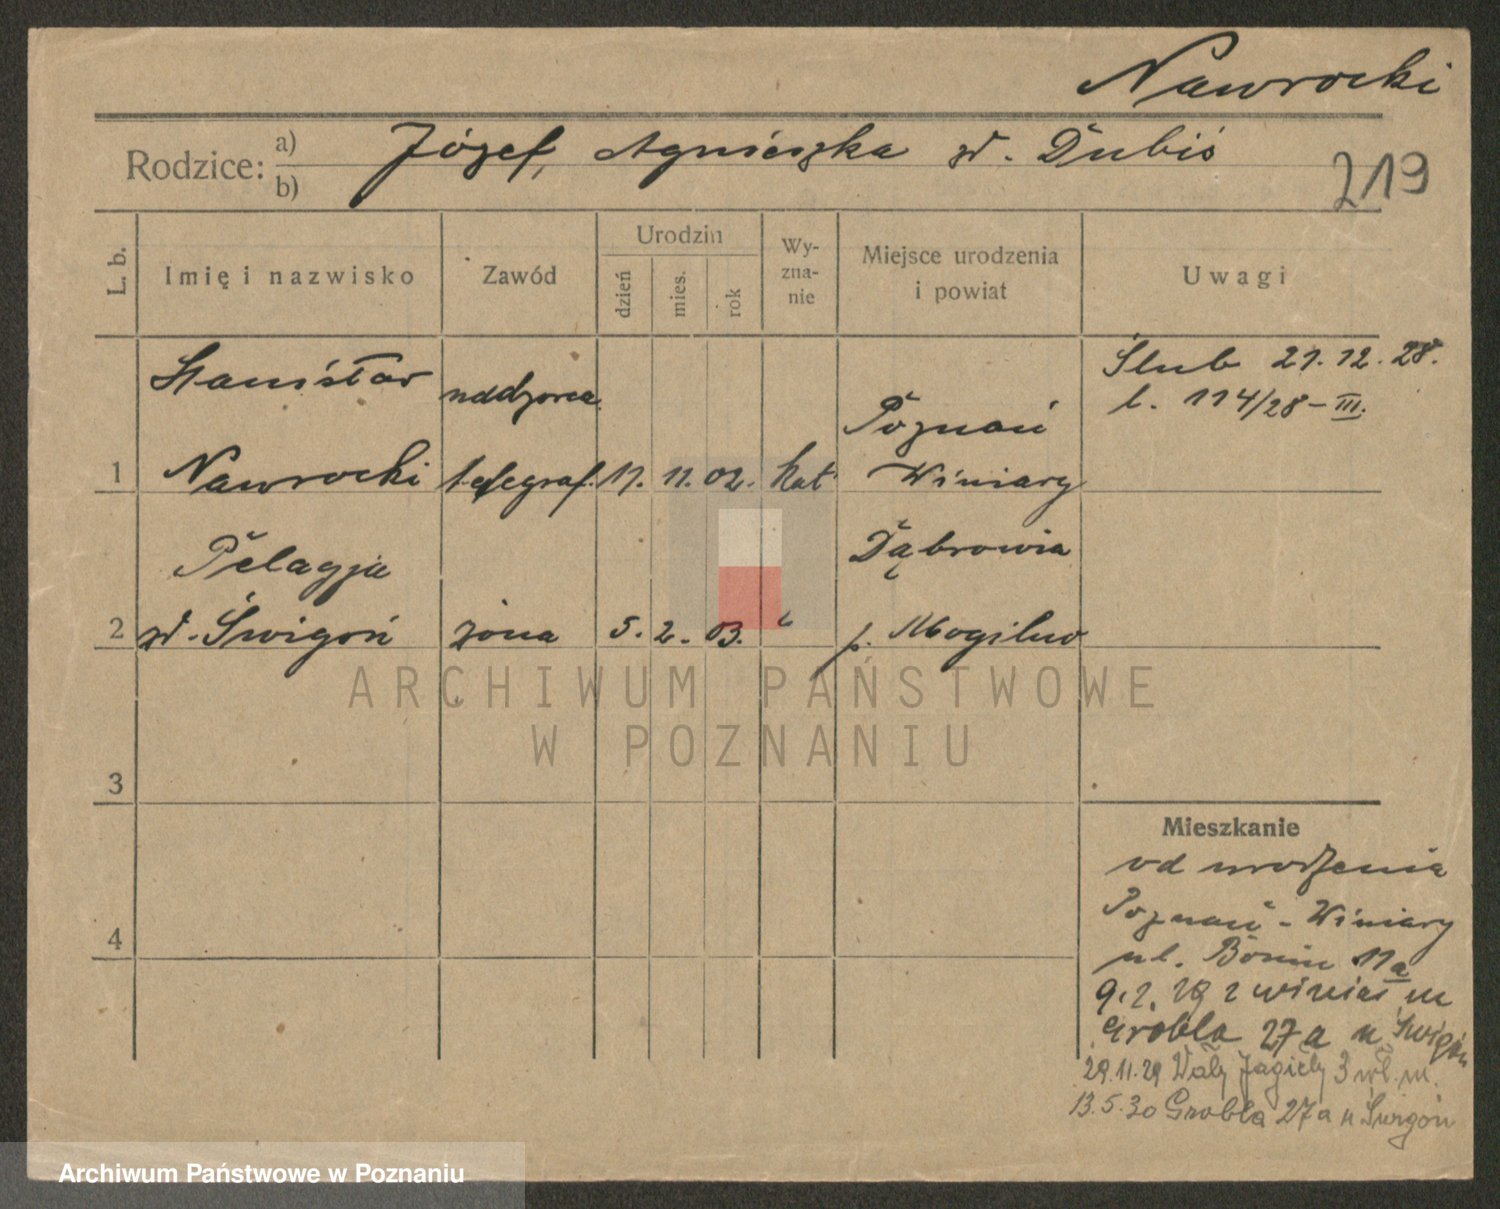 Nawrocki
Rodzice: a) b) Józef, Agnieszka zd. Dubis
219
L. b.
Imię i nazwisko
Zawód
Urodzin
dzień
mies.
rok
Wy-
zna-
nie
Miejsce urodzenia
i powiat
Uwagi
Stanisław
nadzorca
Poznań
Ślub 21.12.28.
l. 114/28-III.
1 Nawrocki telegraf. 17. 11. 02. kat Winiary
Pelagja
Dąbrowia
2 zd. Świgoń żona 5. 2. 03. " p. Mogilno
3
Mieszkanie
od urodzenia
Poznań - Winiary
4
ul. Bonin 11a
9.2.29 z winiar
Grobla 27a u Świgoń
29.11.29 Wały Jagiełły 3 wł. m.
13.5.30 Grobla 27a u Świgoń
ARCHIWUM PAŃSTWOWE
W POZNANIU
Archiwum Państwowe w Poznaniu